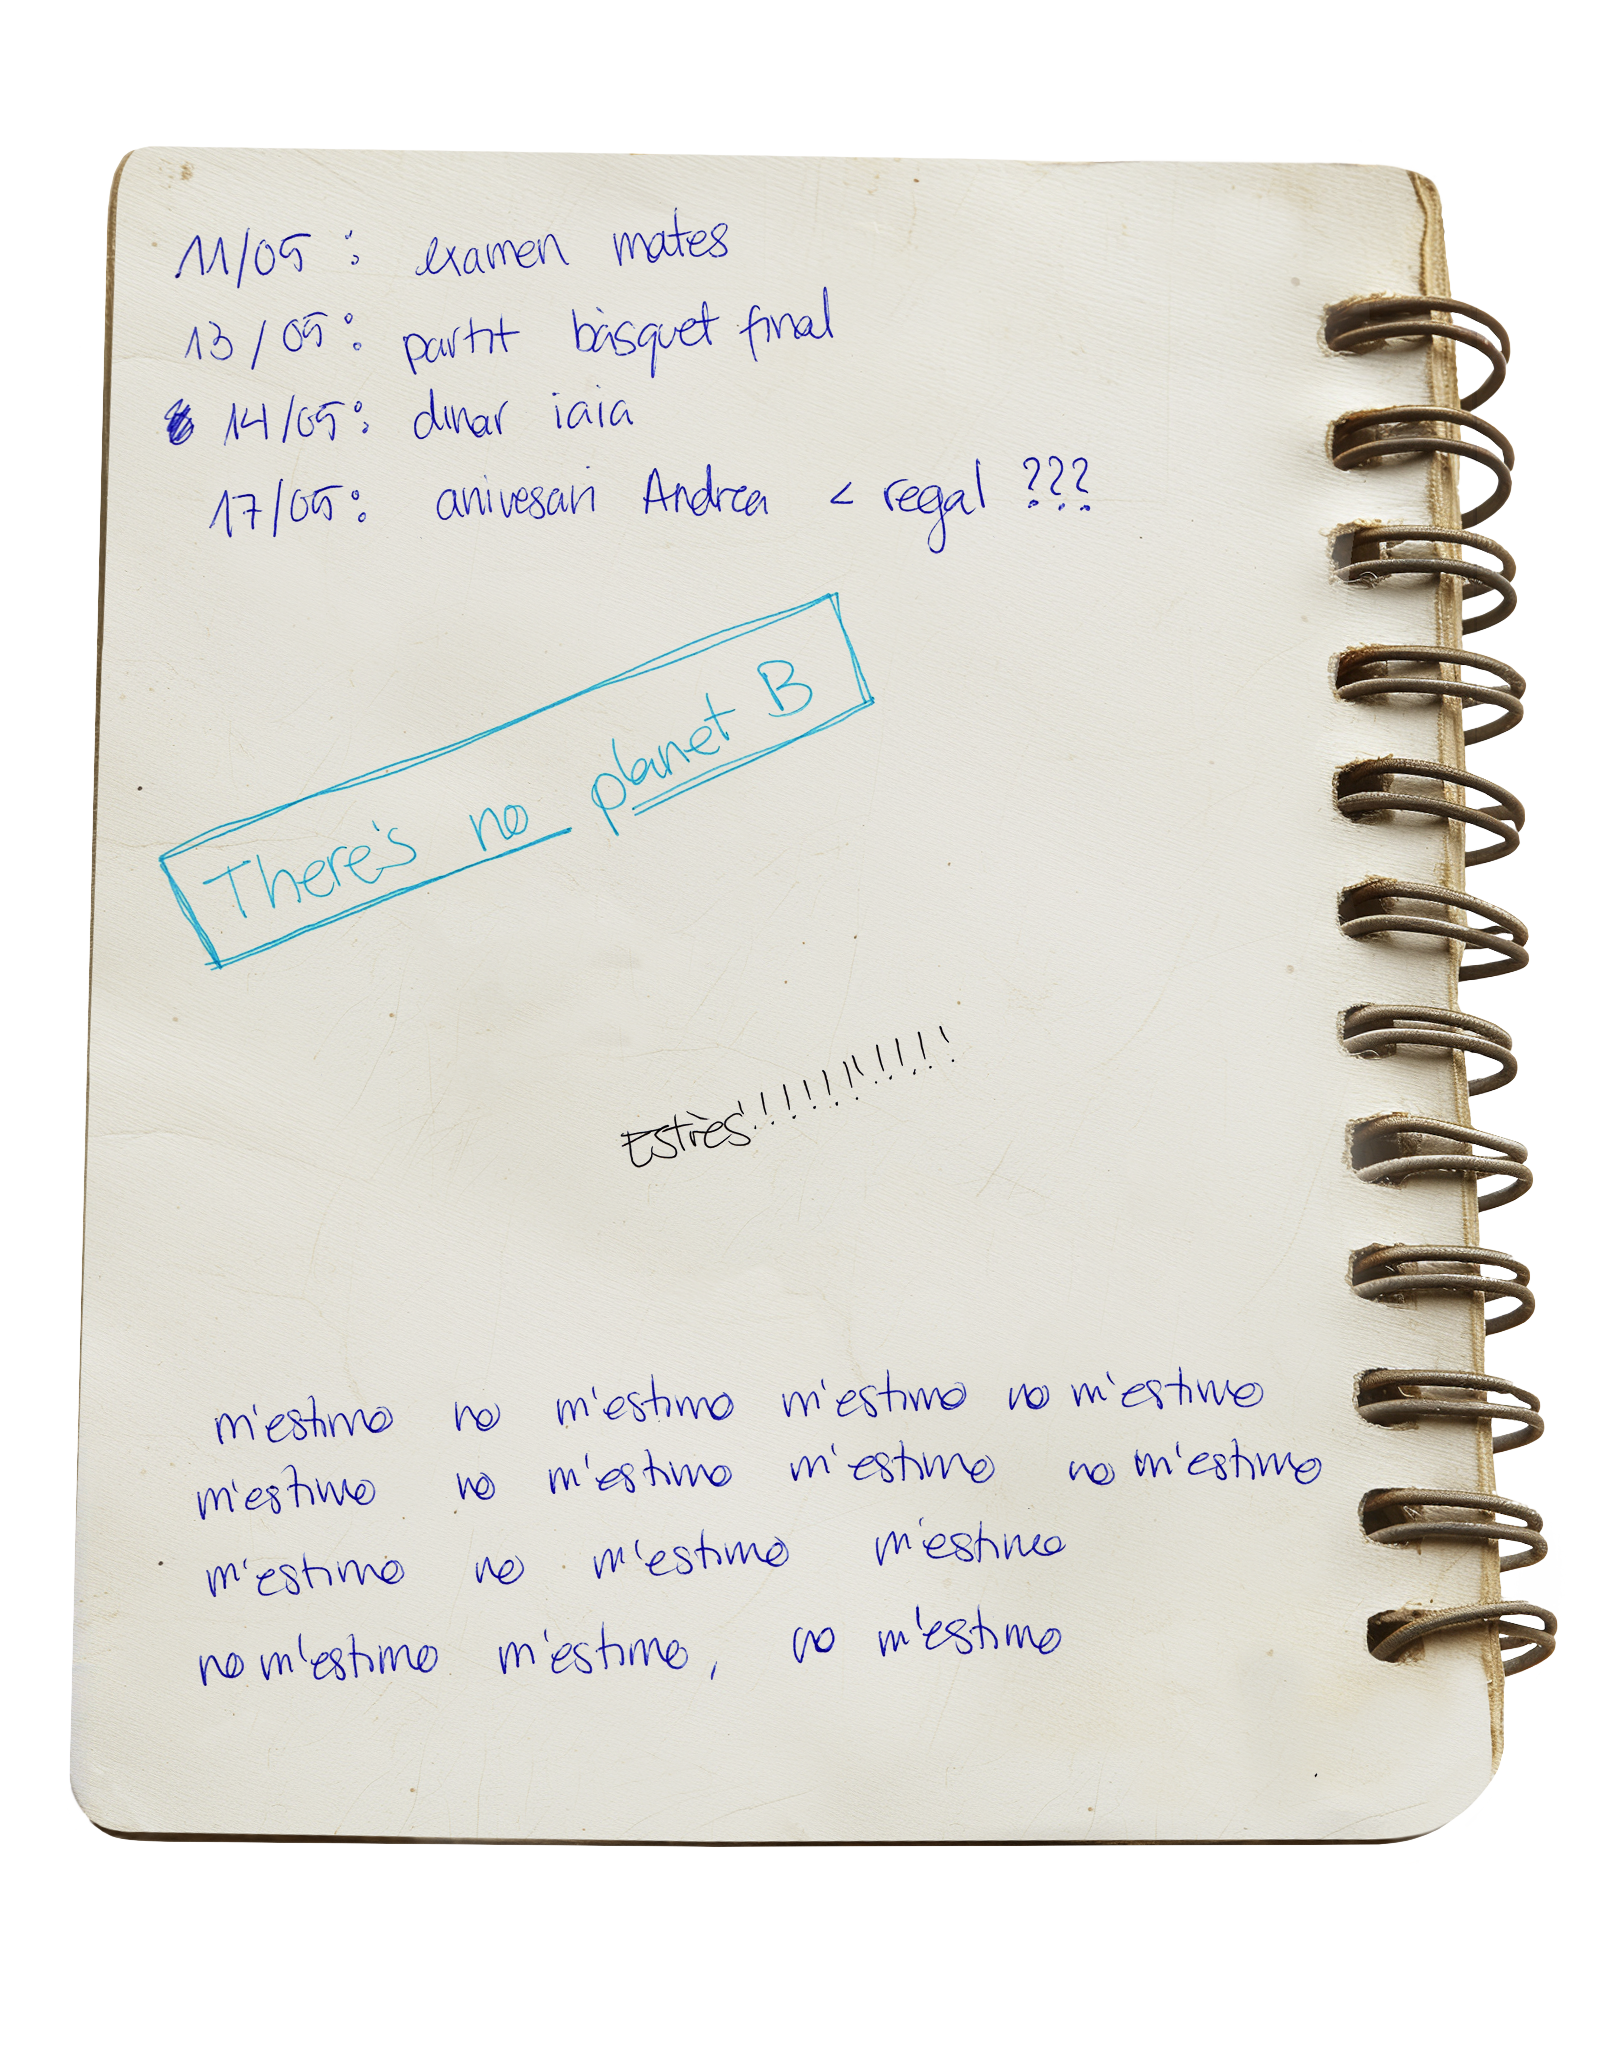 11/05: examen mates
13/05: partit bàsquet final
14/05: dinar iaia
17/05: anivesari Andrea < regal ???
There's no planet B
Estrès!!!!!!!!!!!
m'estimo no m'estimo m'estimo no m'estimo
m'estimo no m'estimo m'estimo no m'estimo
m'estimo no m'estimo m'estimo
no m'estimo m'estimo, no m'estimo